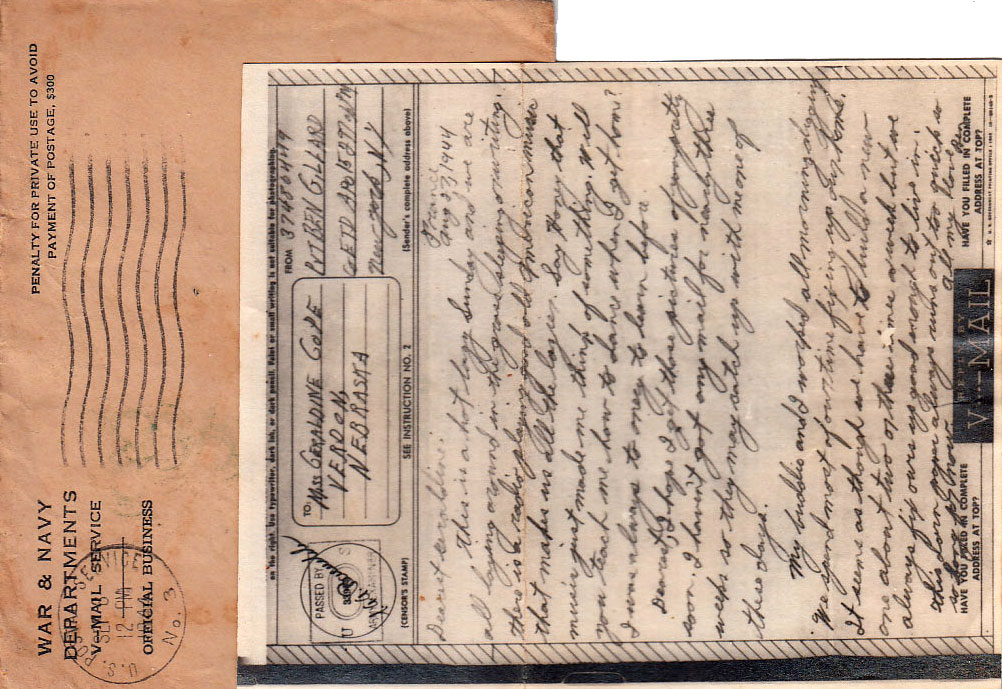 PENALTY FOR PRIVATE USE TO AVOID
PAYMENT OF POSTAGE, $300
WAR & NAVY
DEPARTMENTS
V-MAIL SERVICE
OFFICIAL BUSINESS
U.S. POSTAL SERVICE
SEP
12-PM
No. 3
on the right. Use typewriter, dark ink, or dark pencil. Faint or small writing is not suitable for photographing.
PASSED BY
U S
ARMY EXAMINER
(CENSOR'S STAMP)
TO:
MISS GERALDINE GOLE
VERDON
NEBRASKA
SEE INSTRUCTION NO. 2
FROM
PVT BEN GILLARD
New york N.Y
(Sender's complete address above)
France
Aug 1944
Dearest
this is a hot lazy Sunday and we are
all laying around in the grass sleeping or writing.
there is a radio playing good old American music
that makes us all the lazier. Say Honey that
music just made me think of something. Will
you teach me how to dance when I get home?
I was always to ornry to learn before
Dearest, I hope I get those pictures of yours pretty
soon. I haven't got any mail for nearly three
weeks so they may catch up with me one of
these days.
My buddie and I worked all morning
We spend most of our time fixing up our homes.
It seems as though we have to build a new
one about two or three times a week but we
always fix ours up good enough to live in.
this horn again always runs out to quick so
so long for now
all my love
Ben
HAVE YOU FILLED IN COMPLETE
ADDRESS AT TOP?
V-MAIL
HAVE YOU FILLED IN COMPLETE
ADDRESS AT TOP?